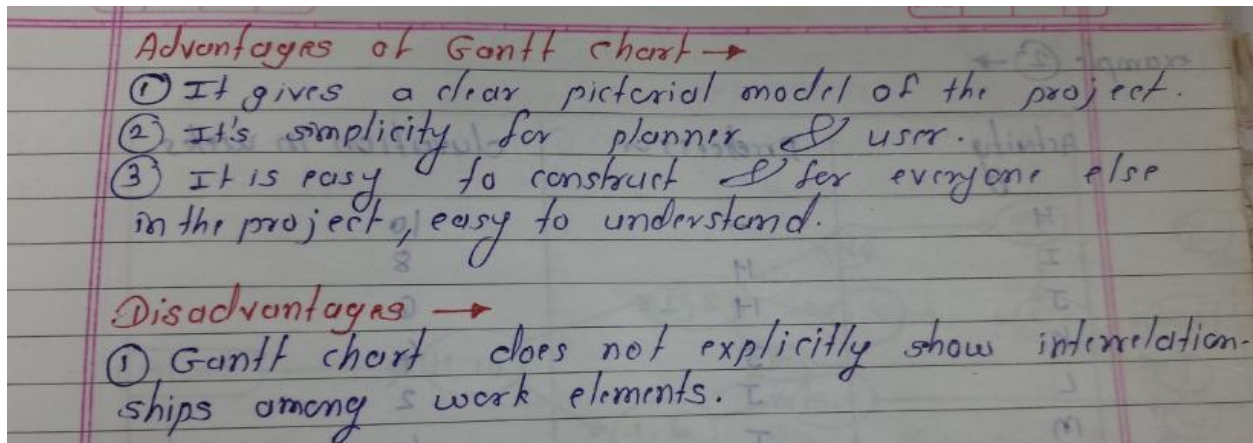 Advantages of Gantt chart →
① It gives a clear pictorial model of the project.
② It's simplicity for planner & user.
③ It is easy to construct & for everyone else
in the project, easy to understand.
Disadvantages →
① Gantt chart does not explicitly show interrelation-
ships among work elements.